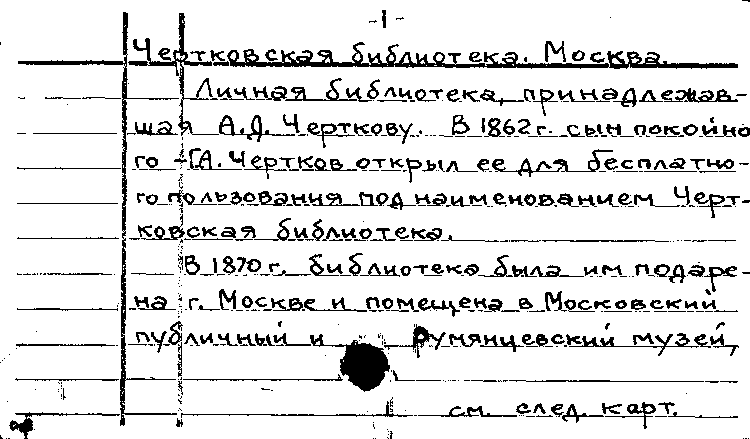 -1-
Чертковская библиотека. Москва.
Личная библиотека, принадлежав-
шая А.Д. Черткову. В 1862 г. сын покойно
го - Г.А. Чертков открыл ее для бесплатно-
го пользования под наименованием Черт-
ковская библиотека.
В 1870 г. библиотека была им подаре-
на г. Москве и помещена в Московский
публичный и Румянцевский музей,
см. след. карт.